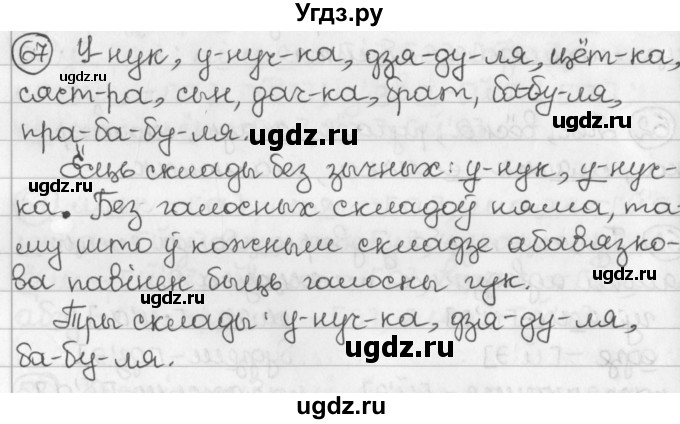 Угдз.ру
67 У-нук, у-нуч-ка, дзя-ду-ля, цёт-ка,
сяст-ра, сын, дач-ка, брат, ба-бу-ля,
пра-ба-бу-ля.
Ёсць склады без зычных: у-нук, у-нуч-
ка. Без галосных складоў няма, та-
му што ў кожным складзе абавязко-
ва павінен быць галосны гук.
Тры склады: у-нуч-ка, дзя-ду-ля,
ба-бу-ля.
ugdz.ru
ugdz.ru
ugdz.ru
ugdz.ru
ugdz.ru
ugdz.ru
ugdz.ru
ugdz.ru
ugdz.ru